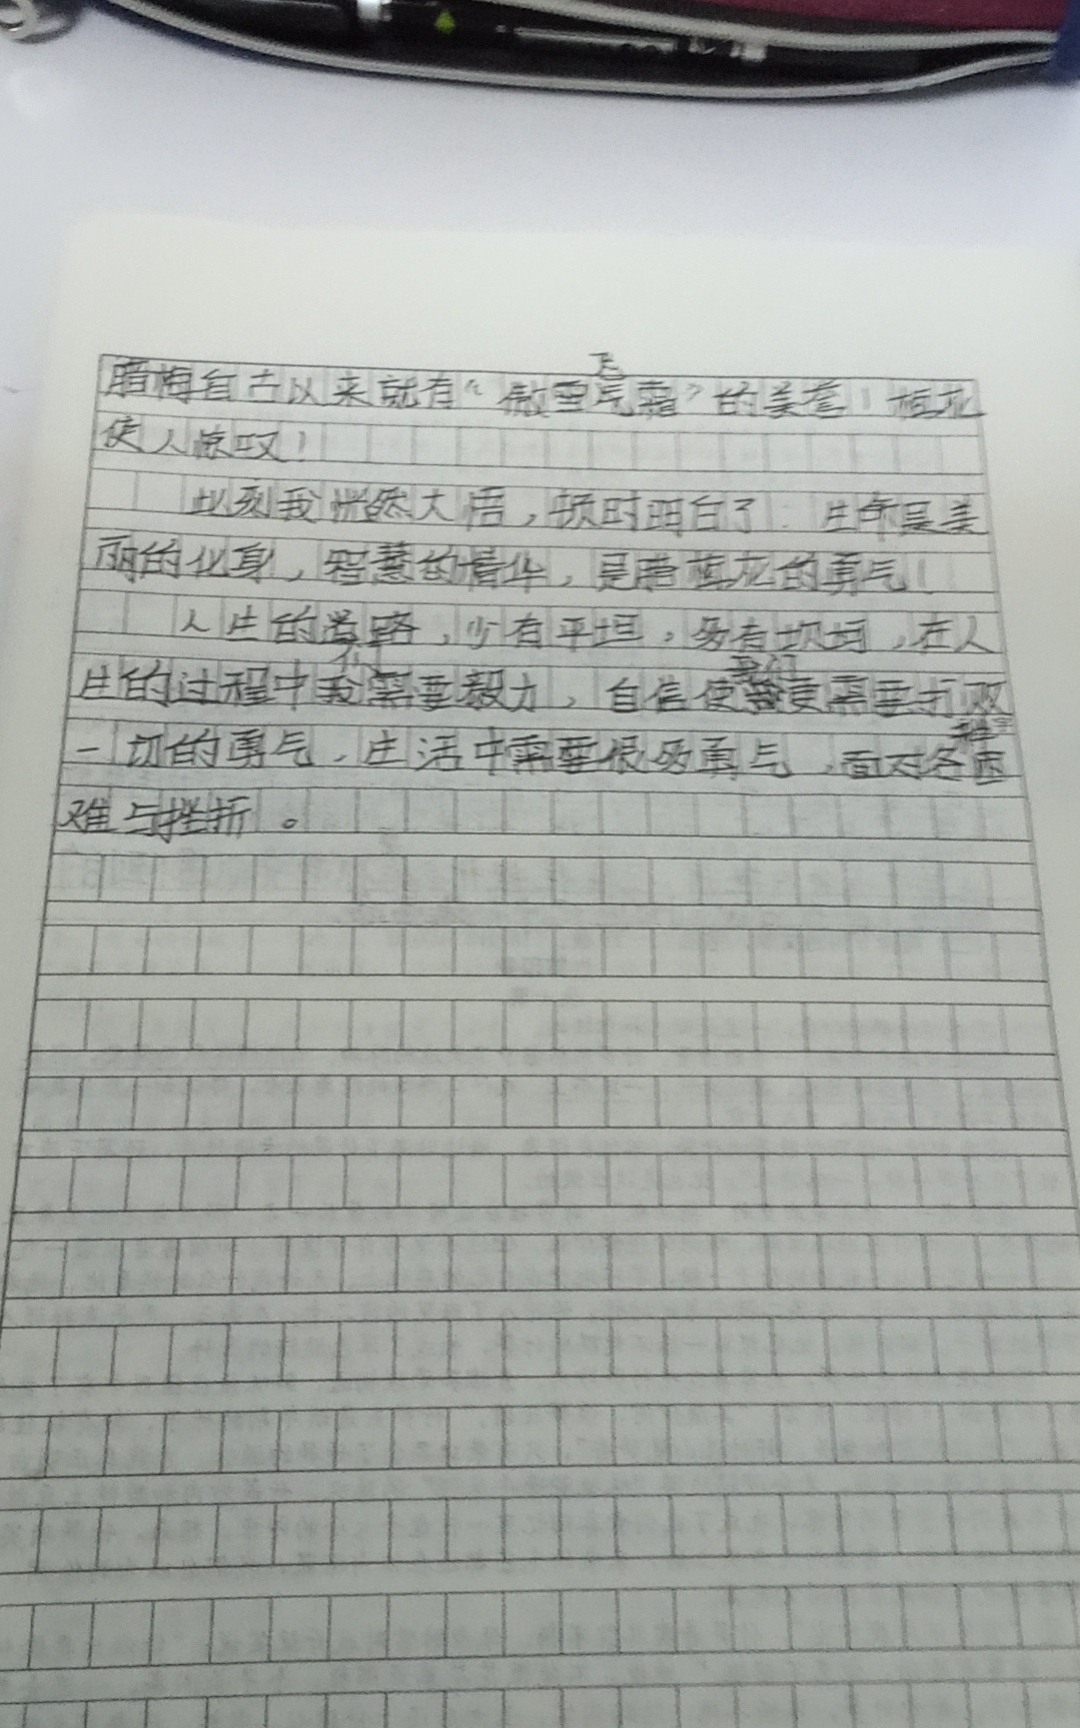 腊梅自古以来就有“傲雪飞霜”的美誉！梅花
使人惊叹！
此刻我恍然大悟，顿时明白了：生命是美
丽的化身，智慧的精华，是腊梅花的勇气！
人生的道路，少有平坦，多有坝坷，在人
生的过程中我们需要毅力，自信使我们更需要打败
一切的勇气，生活中需要很多勇气，面对各种困
难与挫折。